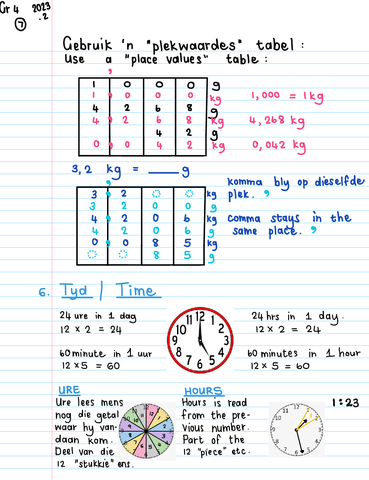 Gr 4 2023
.2
7
Gebruik 'n "plekwaardes" tabel:
Use a "place values" table:
,
1 0 0 0 g
1 0 0 0 kg 1,000 = 1kg
4 2 6 8 g
4 2 6 8 kg 4,268 kg
4 2 g
0 0 4 2 kg 0,042 kg
3,2 kg = ____ g
3 , 2 0 0 kg
3 2 0 0 g
4 , 2 0 6 kg
4 2 0 6 g
0 0 8 5 kg
0 0 8 5 g
komma bly op dieselfde
plek. ,
comma stays in the
same place. ,
6. Tyd | Time
24 ure in 1 dag
12 x 2 = 24
60 minute in 1 uur
12 x 5 = 60
12 1 2 3 4 5 6 7 8 9 10 11
24 hrs in 1 day.
12 x 2 = 24
60 minutes in 1 hour
12 x 5 = 60
URE
Ure lees mens
nog die getal
waar hy van-
daan kom.
Deel van die
12 "stukkie" ens.
HOURS
Hours is read
from the pre-
vious number.
Part of the
12 "piece" etc.
12 1 2 3 4 5 6 7 8 9 10 11
1:23